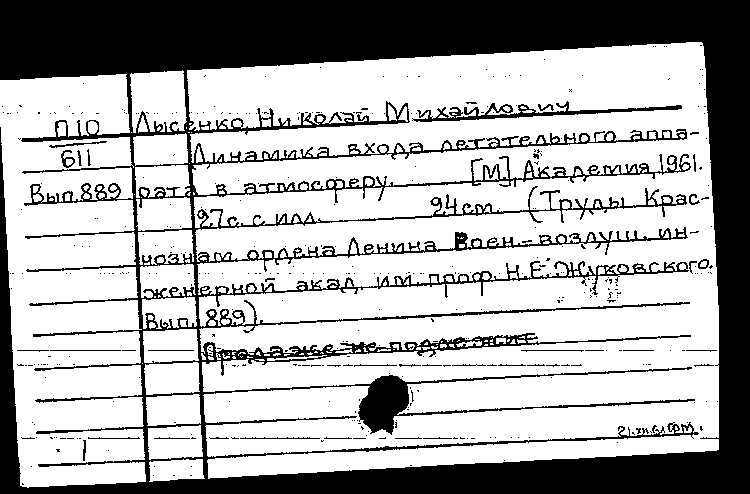 П10 Лысенко, Николай Михайлович
611 Динамика входа летательного аппа-
Вып.889 рата в атмосферу. [М], Академия, 1961.
27с. с илл. 24см. (Труды Крас-
нознам. ордена Ленина Воен.-воздуш. ин-
женерной акад. им. проф. Н.Е. Жуковского.
Вып. 889).
Продаже не подлежит
1